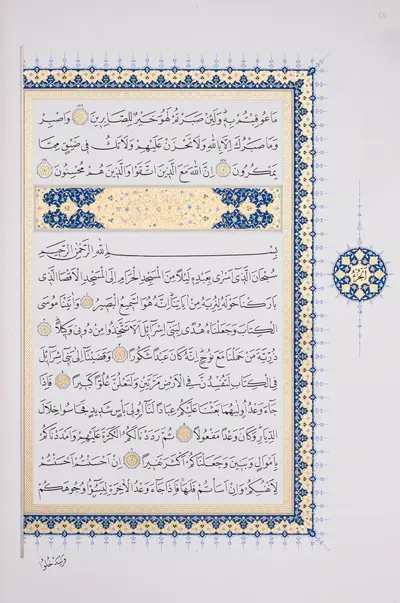 مَا عُوقِبْتُمْ بِهِ وَلَئِنْ صَبَرْتُمْ لَهُوَ خَيْرٌ لِلصَّابِرِينَ وَاصْبِرْ
وَمَا صَبْرُكَ اِلَّا بِاللّٰهِ وَلَا تَحْزَنْ عَلَيْهِمْ وَلَا تَكُ فِي ضَيْقٍ مِمَّا
يَمْكُرُونَ اِنَّ اللّٰهَ مَعَ الَّذِينَ اتَّقَوْا وَالَّذِينَ هُمْ مُحْسِنُونَ
بِسْمِ اللّٰهِ الرَّحْمٰنِ الرَّحِيمِ
سُبْحَانَ الَّذِي اَسْرٰى بِعَبْدِهِ لَيْلًا مِنَ الْمَسْجِدِ الْحَرَامِ اِلَى الْمَسْجِدِ الْاَقْصَا الَّذِي
بَارَكْنَا حَوْلَهُ لِنُرِيَهُ مِنْ اٰيَاتِنَا اِنَّهُ هُوَ السَّمِيعُ الْبَصِيرُ وَاٰتَيْنَا مُوسَى
الْكِتَابَ وَجَعَلْنَاهُ هُدًى لِبَنِي اِسْرَائِلَ اَلَّا تَتَّخِذُوا مِنْ دُونِي وَكِيلًا
ذُرِّيَّةَ مَنْ حَمَلْنَا مَعَ نُوحٍ اِنَّهُ كَانَ عَبْدًا شَكُورًا وَقَضَيْنَا اِلٰى بَنِي اِسْرَائِلَ
فِي الْكِتَابِ لَتُفْسِدُنَّ فِي الْاَرْضِ مَرَّتَيْنِ وَلَتَعْلُنَّ عُلُوًّا كَبِيرًا فَاِذَا
جَاءَ وَعْدُ اُولٰيهُمَا بَعَثْنَا عَلَيْكُمْ عِبَادًا لَنَا اُولِي بَأْسٍ شَدِيدٍ فَجَاسُوا خِلَالَ
الدِّيَارِ وَكَانَ وَعْدًا مَفْعُولًا ثُمَّ رَدَدْنَا لَكُمُ الْكَرَّةَ عَلَيْهِمْ وَاَمْدَدْنَاكُمْ
بِاَمْوَالٍ وَبَنِينَ وَجَعَلْنَاكُمْ اَكْثَرَ نَفِيرًا اِنْ اَحْسَنْتُمْ اَحْسَنْتُمْ
لِاَنْفُسِكُمْ وَاِنْ اَسَأْتُمْ فَلَهَا فَاِذَا جَاءَ وَعْدُ الْاٰخِرَةِ لِيَسُوءُوا وُجُوهَكُمْ
الجزء
وَلِيَدْخُلُوا